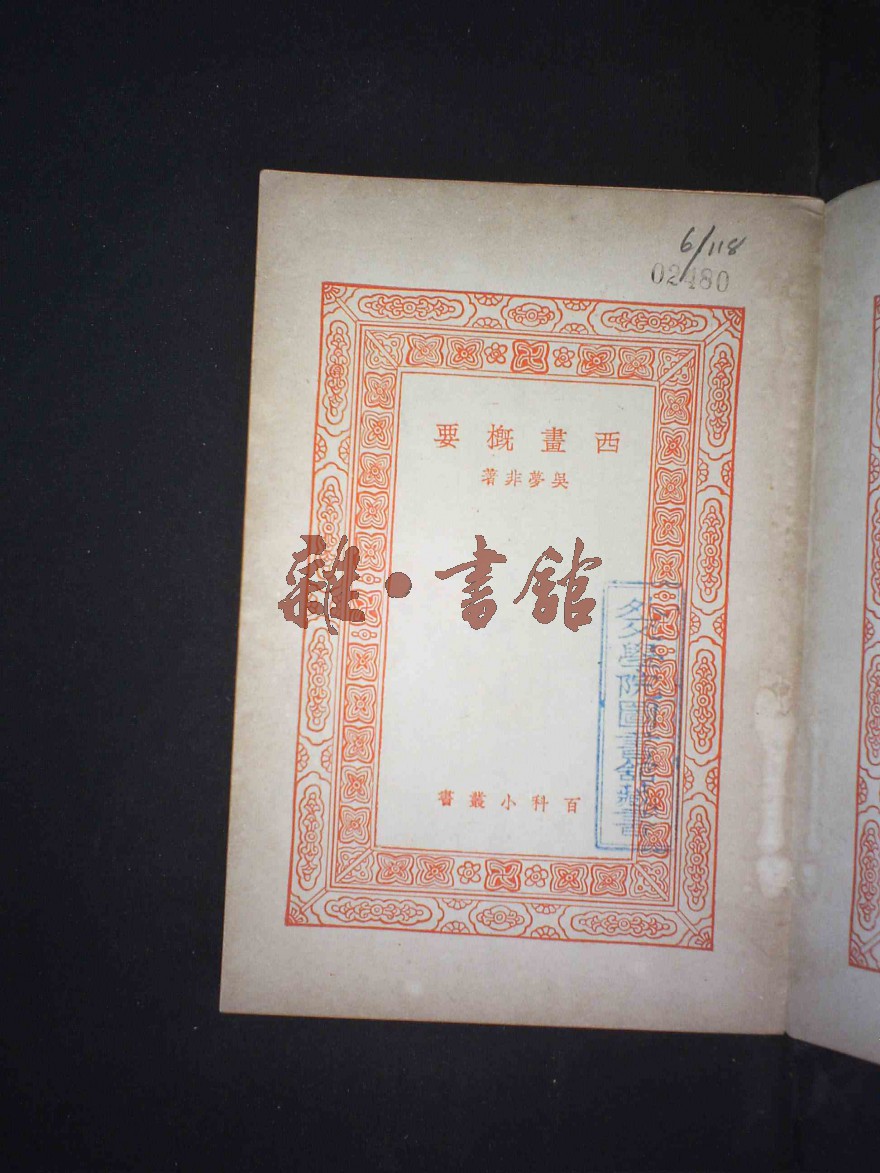 6/118
02480
西畫概要
吳夢非著
雜·書館
外文學院圖書館藏書
百科小叢書